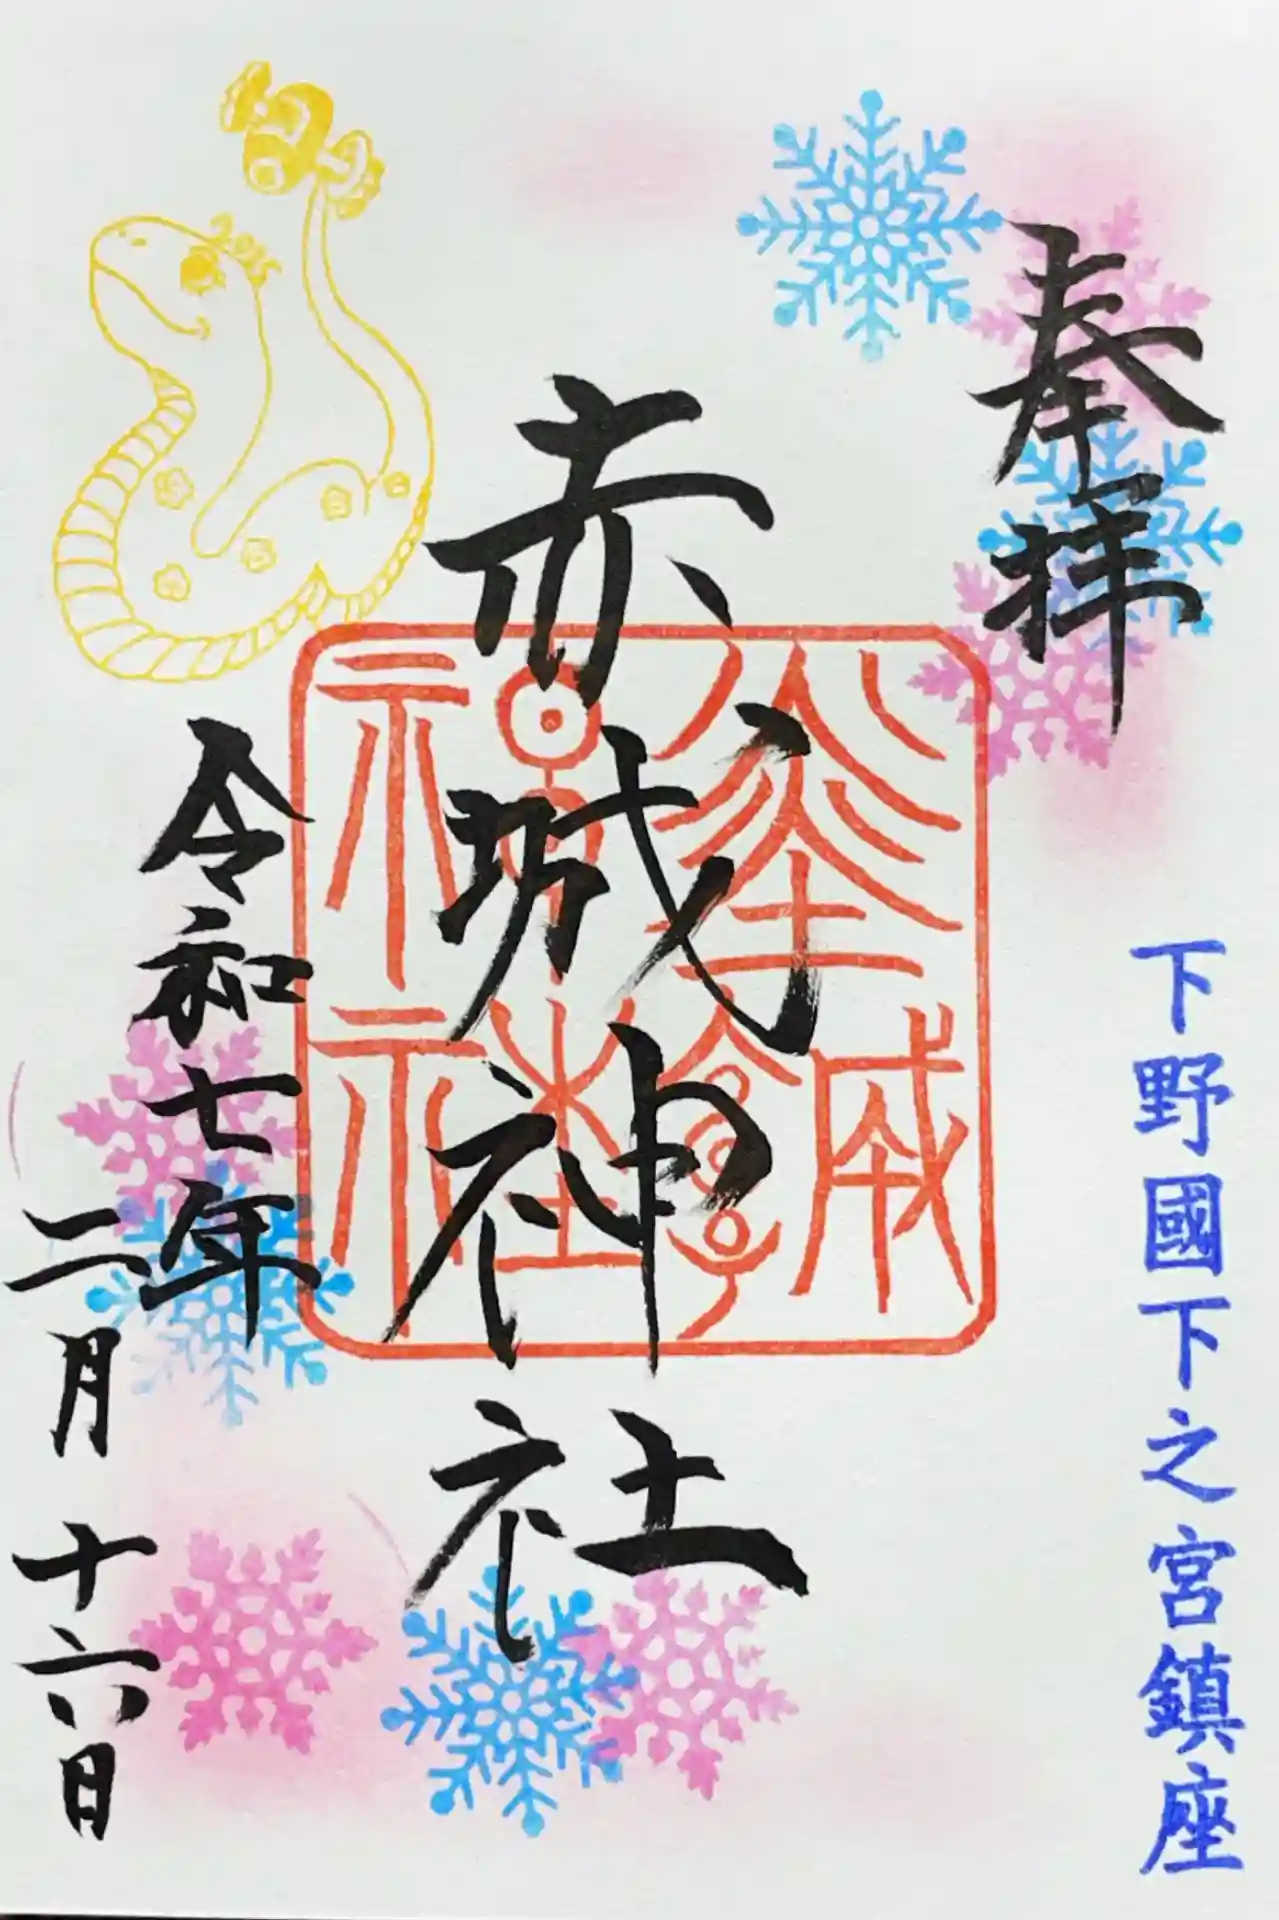 奉拝
下野國下之宮鎮座
赤城神社
赤城神社
令和七年
二月十六日